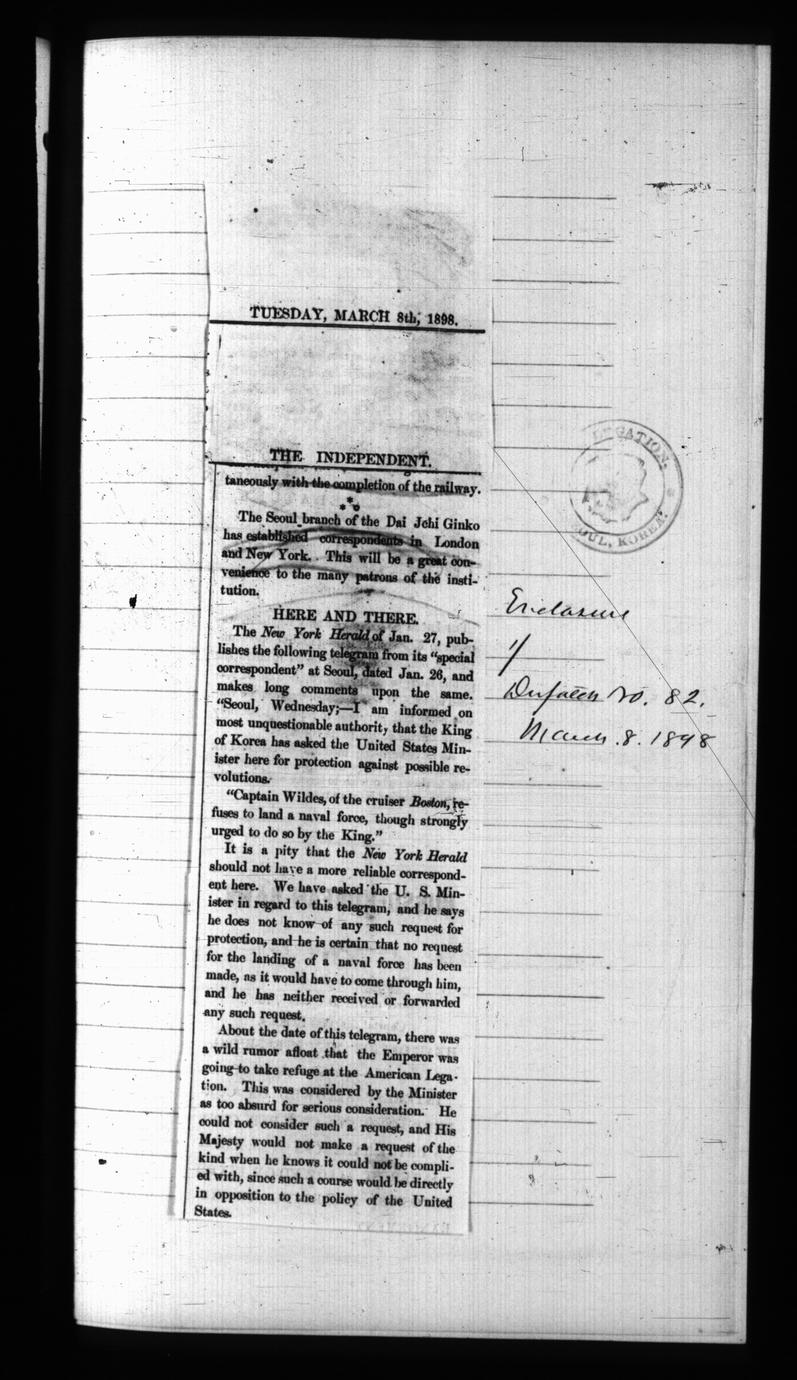 TUESDAY, MARCH 8th, 1898.
THE INDEPENDENT.
taneously with the completion of the railway.
The Seoul branch of the Dai Jchi Ginko
has established correspondents in London
and New York. This will be a great con-
venience to the many patrons of the insti-
tution.
HERE AND THERE.
The New York Herald of Jan. 27, pub-
lishes the following telegram from its "special
correspondent" at Seoul, dated Jan. 26, and
makes long comments upon the same.
"Seoul, Wednesday;—I am informed on
most unquestionable authority that the King
of Korea has asked the United States Min-
ister here for protection against possible re-
volutions.
"Captain Wildes, of the cruiser Boston, re-
fuses to land a naval force, though strongly
urged to do so by the King."
It is a pity that the New York Herald
should not have a more reliable correspond-
ent here. We have asked the U. S. Min-
ister in regard to this telegram, and he says
he does not know of any such request for
protection, and he is certain that no request
for the landing of a naval force has been
made, as it would have to come through him,
and he has neither received or forwarded
any such request.
About the date of this telegram, there was
a wild rumor afloat that the Emperor was
going to take refuge at the American Lega-
tion. This was considered by the Minister
as too absurd for serious consideration. He
could not consider such a request, and His
Majesty would not make a request of the
kind when he knows it could not be compli-
ed with, since such a course would be directly
in opposition to the policy of the United
States.
LEGATION.
SEOUL, KOREA.
Enclosure
1/
Dispatch No. 82.
March. 8. 1898